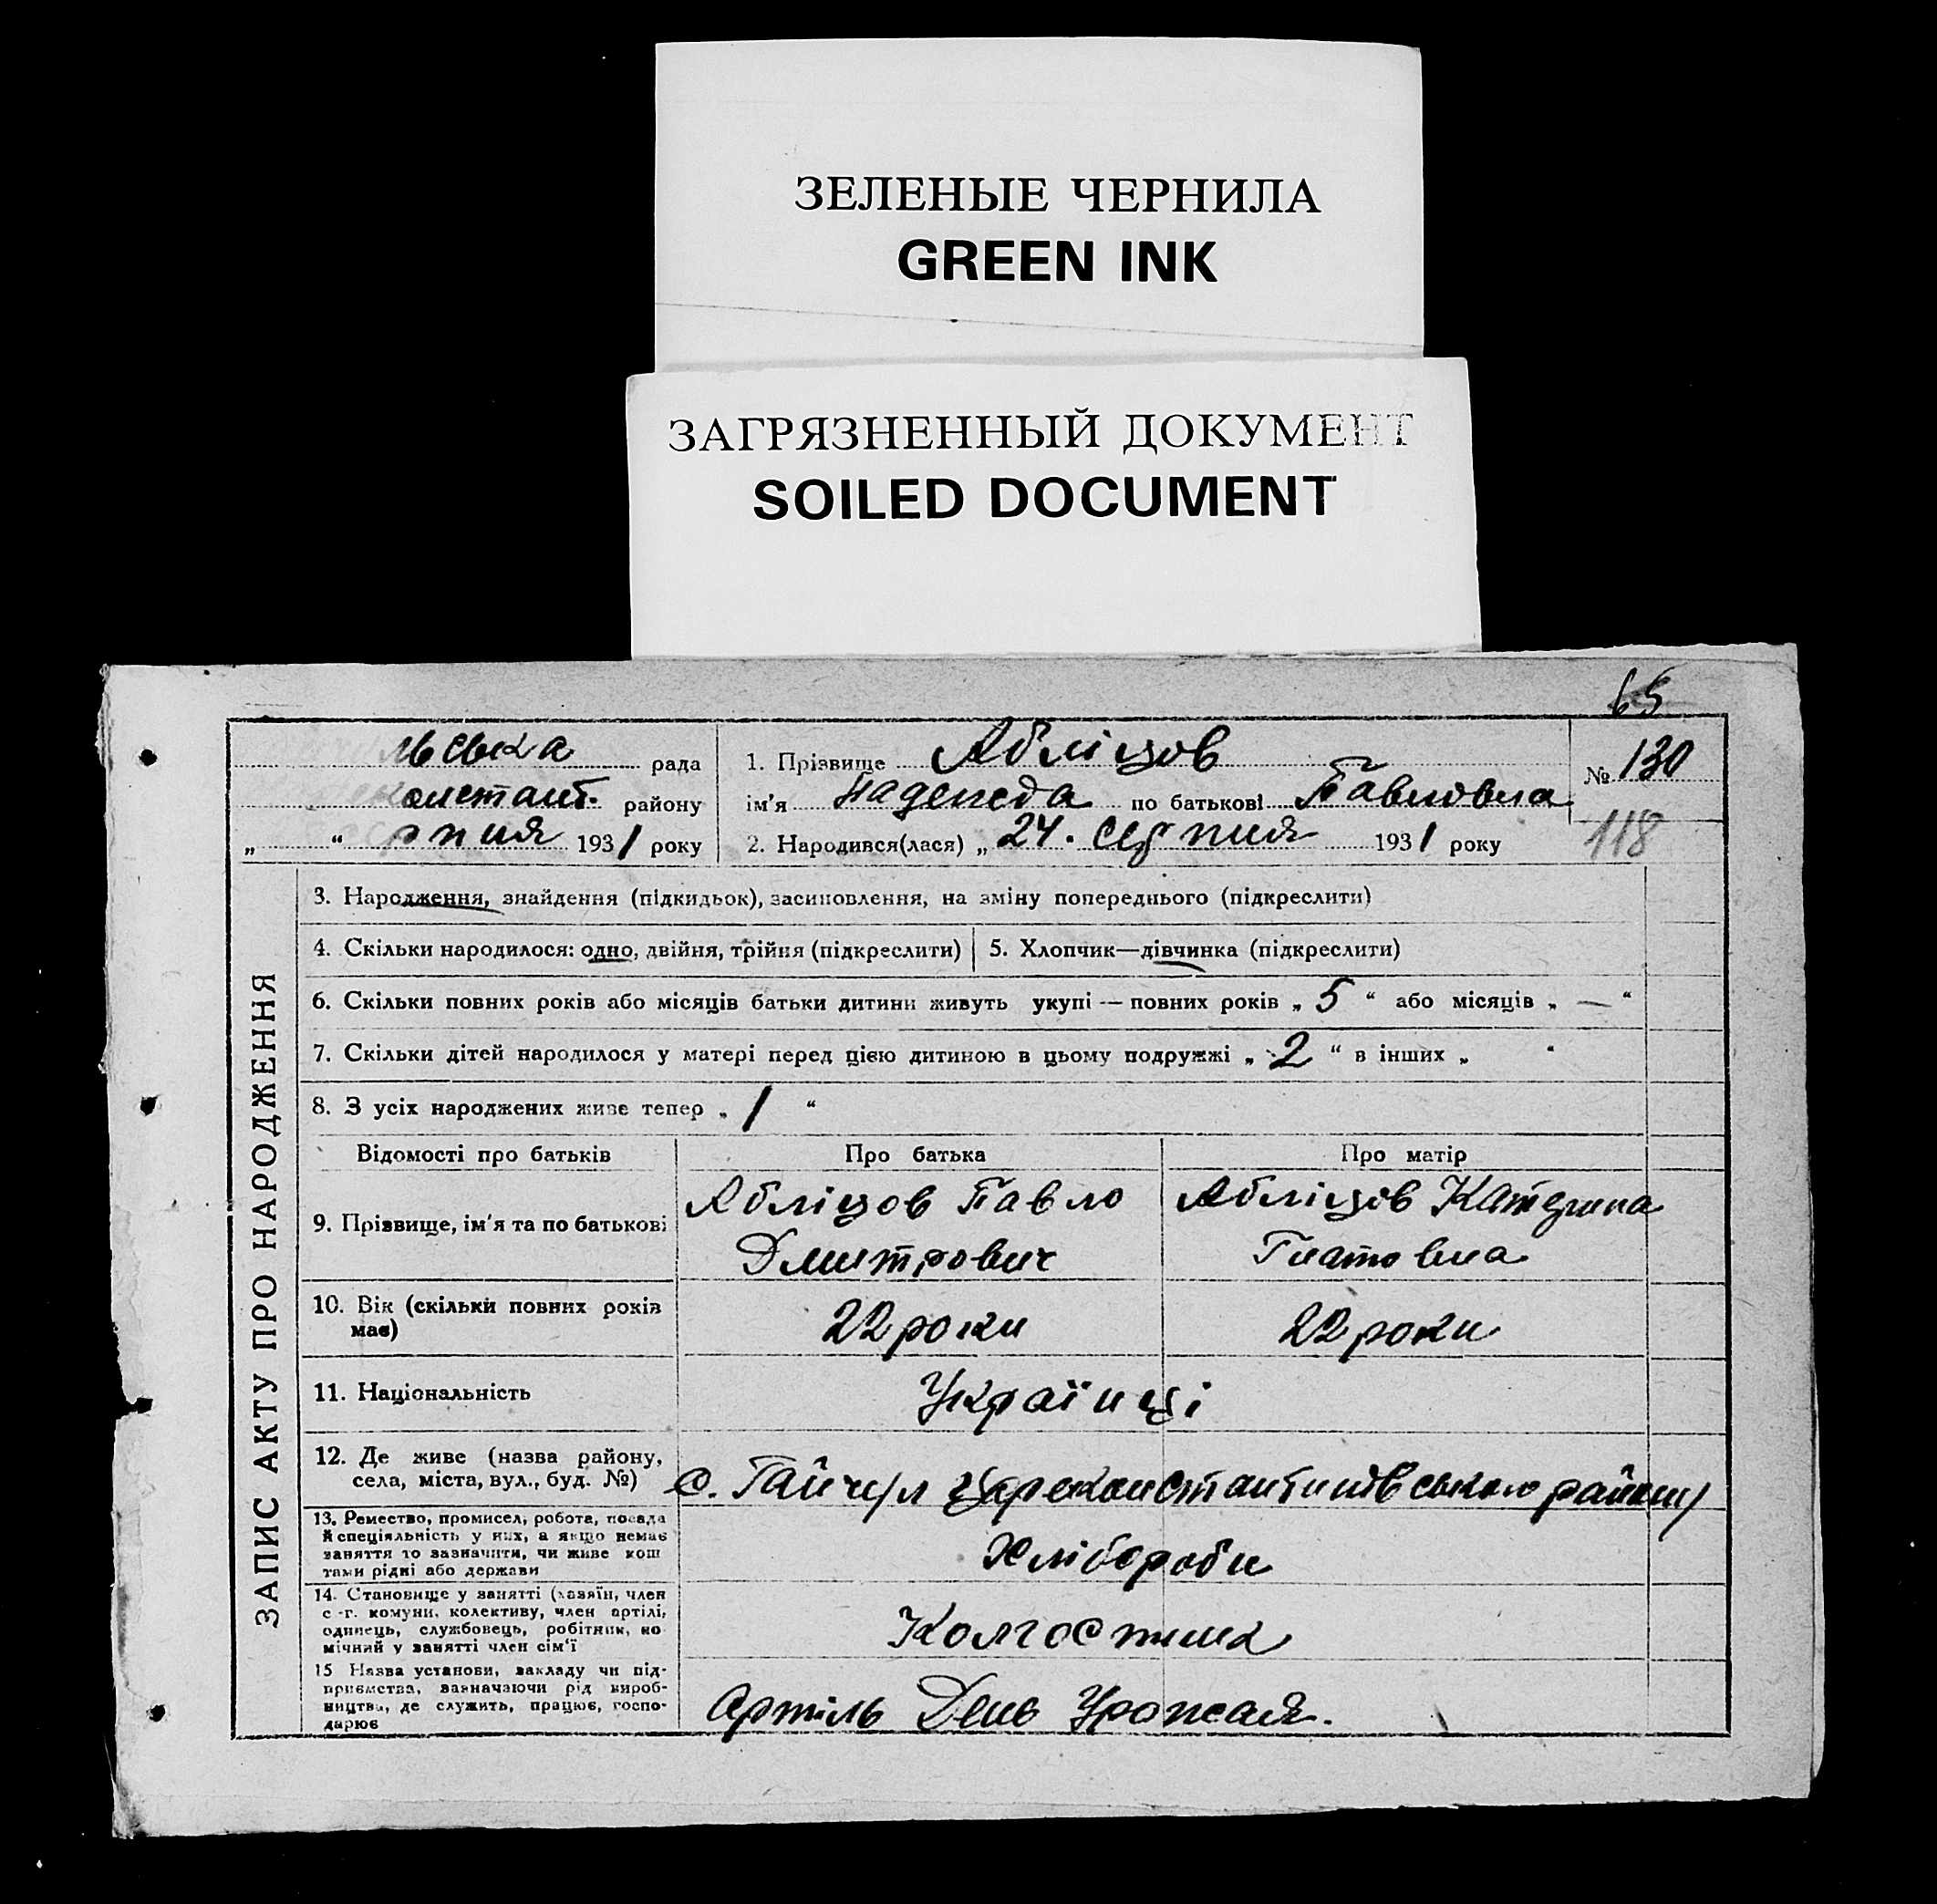 ЗЕЛЕНЫЕ ЧЕРНИЛА
GREEN INK
ЗАГРЯЗНЕННЫЙ ДОКУМЕНТ
SOILED DOCUMENT
65
льська рада
констант. району
„ “ рпня 1931 року
1. Прізвище Абліцов
ім'я Надежда по батькові Павловна
2. Народився(лася) „ 24. Серпня 1931 року
№ 130
118
ЗАПИС АКТУ ПРО НАРОДЖЕННЯ
3. Народження, знайдення (підкидьок), засиновлення, на зміну попереднього (підкреслити)
4. Скільки народилося: одно, двійня, трійня (підкреслити)
5. Хлопчик—дівчинка (підкреслити)
6. Скільки повних років або місяців батьки дитини живуть укупі — повних років „ 5 “ або місяців „ — “
7. Скільки дітей народилося у матері перед цією дитиною в цьому подружжі „ 2 “ в інших „ “
8. З усіх народжених живе тепер „ 1 “
Відомості про батьків
Про батька
Про матір
9. Прізвище, ім'я та по батькові
Абліцов Павло
Дмитрович
Абліцов Катерина
Гнатовна
10. Вік (скільки повних років
має)
22 роки
22 роки
11. Національність
Українці
12. Де живе (назва району,
села, міста, вул., буд. №)
с. Гайчул Царекостантинівського району
13. Ремество, промисел, робота, посада
й спеціяльність у них, а якщо немає
заняття то зазначити, чи живе кош
тами рідні або держави
Хлібороби
14. Становище у занятті (хазяїн, член
с.-г. комуни, колективу, член артілі,
одинець, службовець, робітник, по
мічний у занятті член сім'ї
Колгоспник
15 Назва установи, закладу чи під-
приємства, зазначаючи рід вироб-
ництва, де служить, працює, госпо-
дарює
Артіль День Урожая.